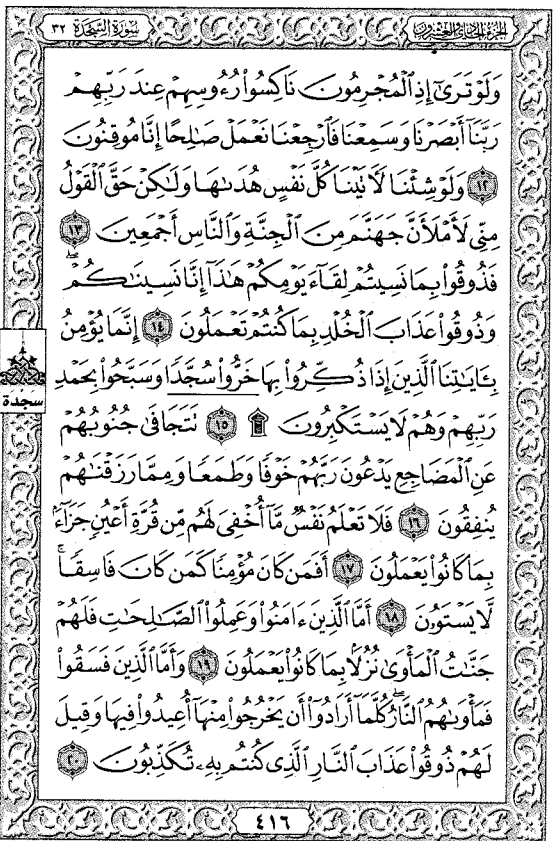 سُورَةُ السَّجْدَةِ ٣٢
الجُزْءُ الحَادِي وَالعِشْرُونَ
وَلَوْ تَرَىٰٓ إِذِ ٱلْمُجْرِمُونَ نَاكِسُوا۟ رُءُوسِهِمْ عِندَ رَبِّهِمْ
رَبَّنَآ أَبْصَرْنَا وَسَمِعْنَا فَٱرْجِعْنَا نَعْمَلْ صَٰلِحًا إِنَّا مُوقِنُونَ
١٢ وَلَوْ شِئْنَا لَءَاتَيْنَا كُلَّ نَفْسٍ هُدَىٰهَا وَلَٰكِنْ حَقَّ ٱلْقَوْلُ
مِنِّى لَأَمْلَأَنَّ جَهَنَّمَ مِنَ ٱلْجِنَّةِ وَٱلنَّاسِ أَجْمَعِينَ ١٣
فَذُوقُوا۟ بِمَا نَسِيتُمْ لِقَآءَ يَوْمِكُمْ هَٰذَآ إِنَّا نَسِينَٰكُمْ ۖ
وَذُوقُوا۟ عَذَابَ ٱلْخُلْدِ بِمَا كُنتُمْ تَعْمَلُونَ ١٤ إِنَّمَا يُؤْمِنُ
بِـَٔايَٰتِنَا ٱلَّذِينَ إِذَا ذُكِّرُوا۟ بِهَا خَرُّوا۟ سُجَّدًا وَسَبَّحُوا۟ بِحَمْدِ
سجدة
رَبِّهِمْ وَهُمْ لَا يَسْتَكْبِرُونَ ۩ ١٥ تَتَجَافَىٰ جُنُوبُهُمْ
عَنِ ٱلْمَضَاجِعِ يَدْعُونَ رَبَّهُمْ خَوْفًا وَطَمَعًا وَمِمَّا رَزَقْنَٰهُمْ
يُنفِقُونَ ١٦ فَلَا تَعْلَمُ نَفْسٌ مَّآ أُخْفِىَ لَهُم مِّن قُرَّةِ أَعْيُنٍ جَزَآءًۢ
بِمَا كَانُوا۟ يَعْمَلُونَ ١٧ أَفَمَن كَانَ مُؤْمِنًا كَمَن كَانَ فَاسِقًا ۚ
لَّا يَسْتَوُۥنَ ١٨ أَمَّا ٱلَّذِينَ ءَامَنُوا۟ وَعَمِلُوا۟ ٱلصَّٰلِحَٰتِ فَلَهُمْ
جَنَّٰتُ ٱلْمَأْوَىٰ نُزُلًۢا بِمَا كَانُوا۟ يَعْمَلُونَ ١٩ وَأَمَّا ٱلَّذِينَ فَسَقُوا۟
فَمَأْوَىٰهُمُ ٱلنَّارُ ۖ كُلَّمَآ أَرَادُوٓا۟ أَن يَخْرُجُوا۟ مِنْهَآ أُعِيدُوا۟ فِيهَا وَقِيلَ
لَهُمْ ذُوقُوا۟ عَذَابَ ٱلنَّارِ ٱلَّذِى كُنتُم بِهِۦ تُكَذِّبُونَ ٢٠
٤١٦